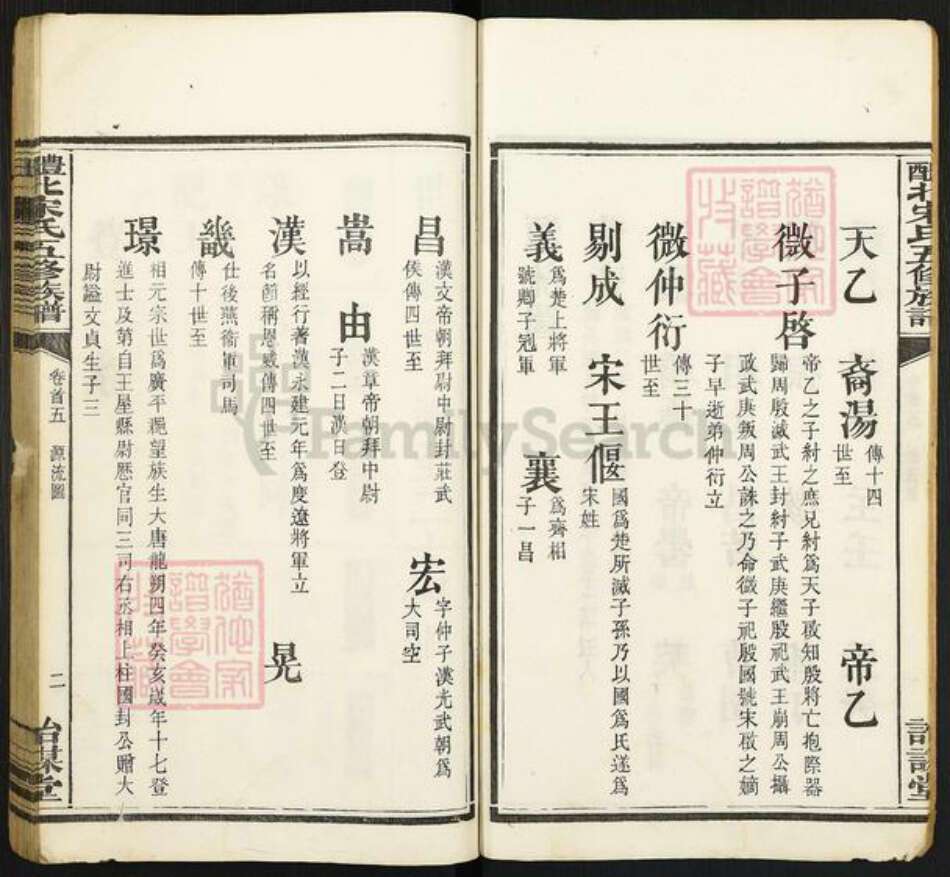 天乙　裔湯　傳十四
世至
帝乙
微子啓　帝乙之子紂之庶兄紂爲天子啟知殷將亡抱際器
歸周殷滅武王封紂子武庚繼殷祀武王崩周公攝
政武庚叛周公誅之乃命微子祀殷國號宋啟之嫡
子早逝弟仲衍立
微仲衍　傳三十
世至
剔成　宋王偃　國爲楚所滅子孫乃以國爲氏遂爲
宋姓
義　爲楚上將軍
號卿子冠軍
襄　爲齊相
子一昌
昌　漢文帝朝拜尉中尉封莊武
侯傳四世至
宏　字仲子漢光武朝爲
大司空
嵩　由　漢章帝朝拜中尉
子二日漢日登
漢　以經行著漢永建元年爲度遼將軍立
名節稱恩威傳四世至
晃
畿　仕後燕衛軍司馬
傳十世至
璟　相元宗世爲廣平望族生大唐龍朔四年癸亥歲年十七登
進士及第自王屋縣尉歷官同三司右丞相上柱國封公贈大
尉謚文貞生子三
醴北宋氏五修族譜
卷首五　源流圖
二
詒謀堂
猶他家譜學會收藏
FamilySearch